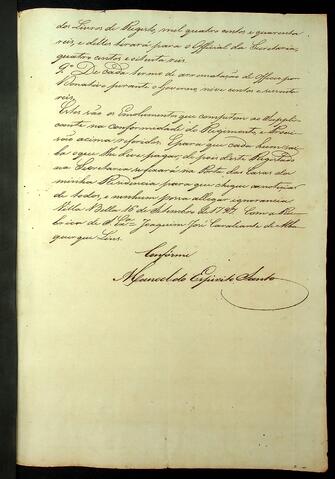 dos Livros de Registo, mil quatro centos e quarenta
reis, e delles tirará para o Official da Secretaria,
quatro centos e oitenta reis.
9º De cada termo de arrematação de Officio, por
Donativo perante o Governo, nove centos e sessenta
reis.
Estes são os Emolumentos que competem ao Suppli-
cante na conformidade do Regimento, e Provi-
são acima referidos. E para que cada hum sai-
ba o que lhe deve pagar, depois deste Registado
na Secretaria, se fixará na Porta das Casas da
minha Residencia para que chegue a noticia
de todos, e nenhum possa allegar ignorancia
Villa Bella 16 de Setembro de 1797 Com a Ru-
brica de S. Exª Joaquim José Cavalcante de Albu-
querque Lins.
Conforme
Manoel do Espirito Santo